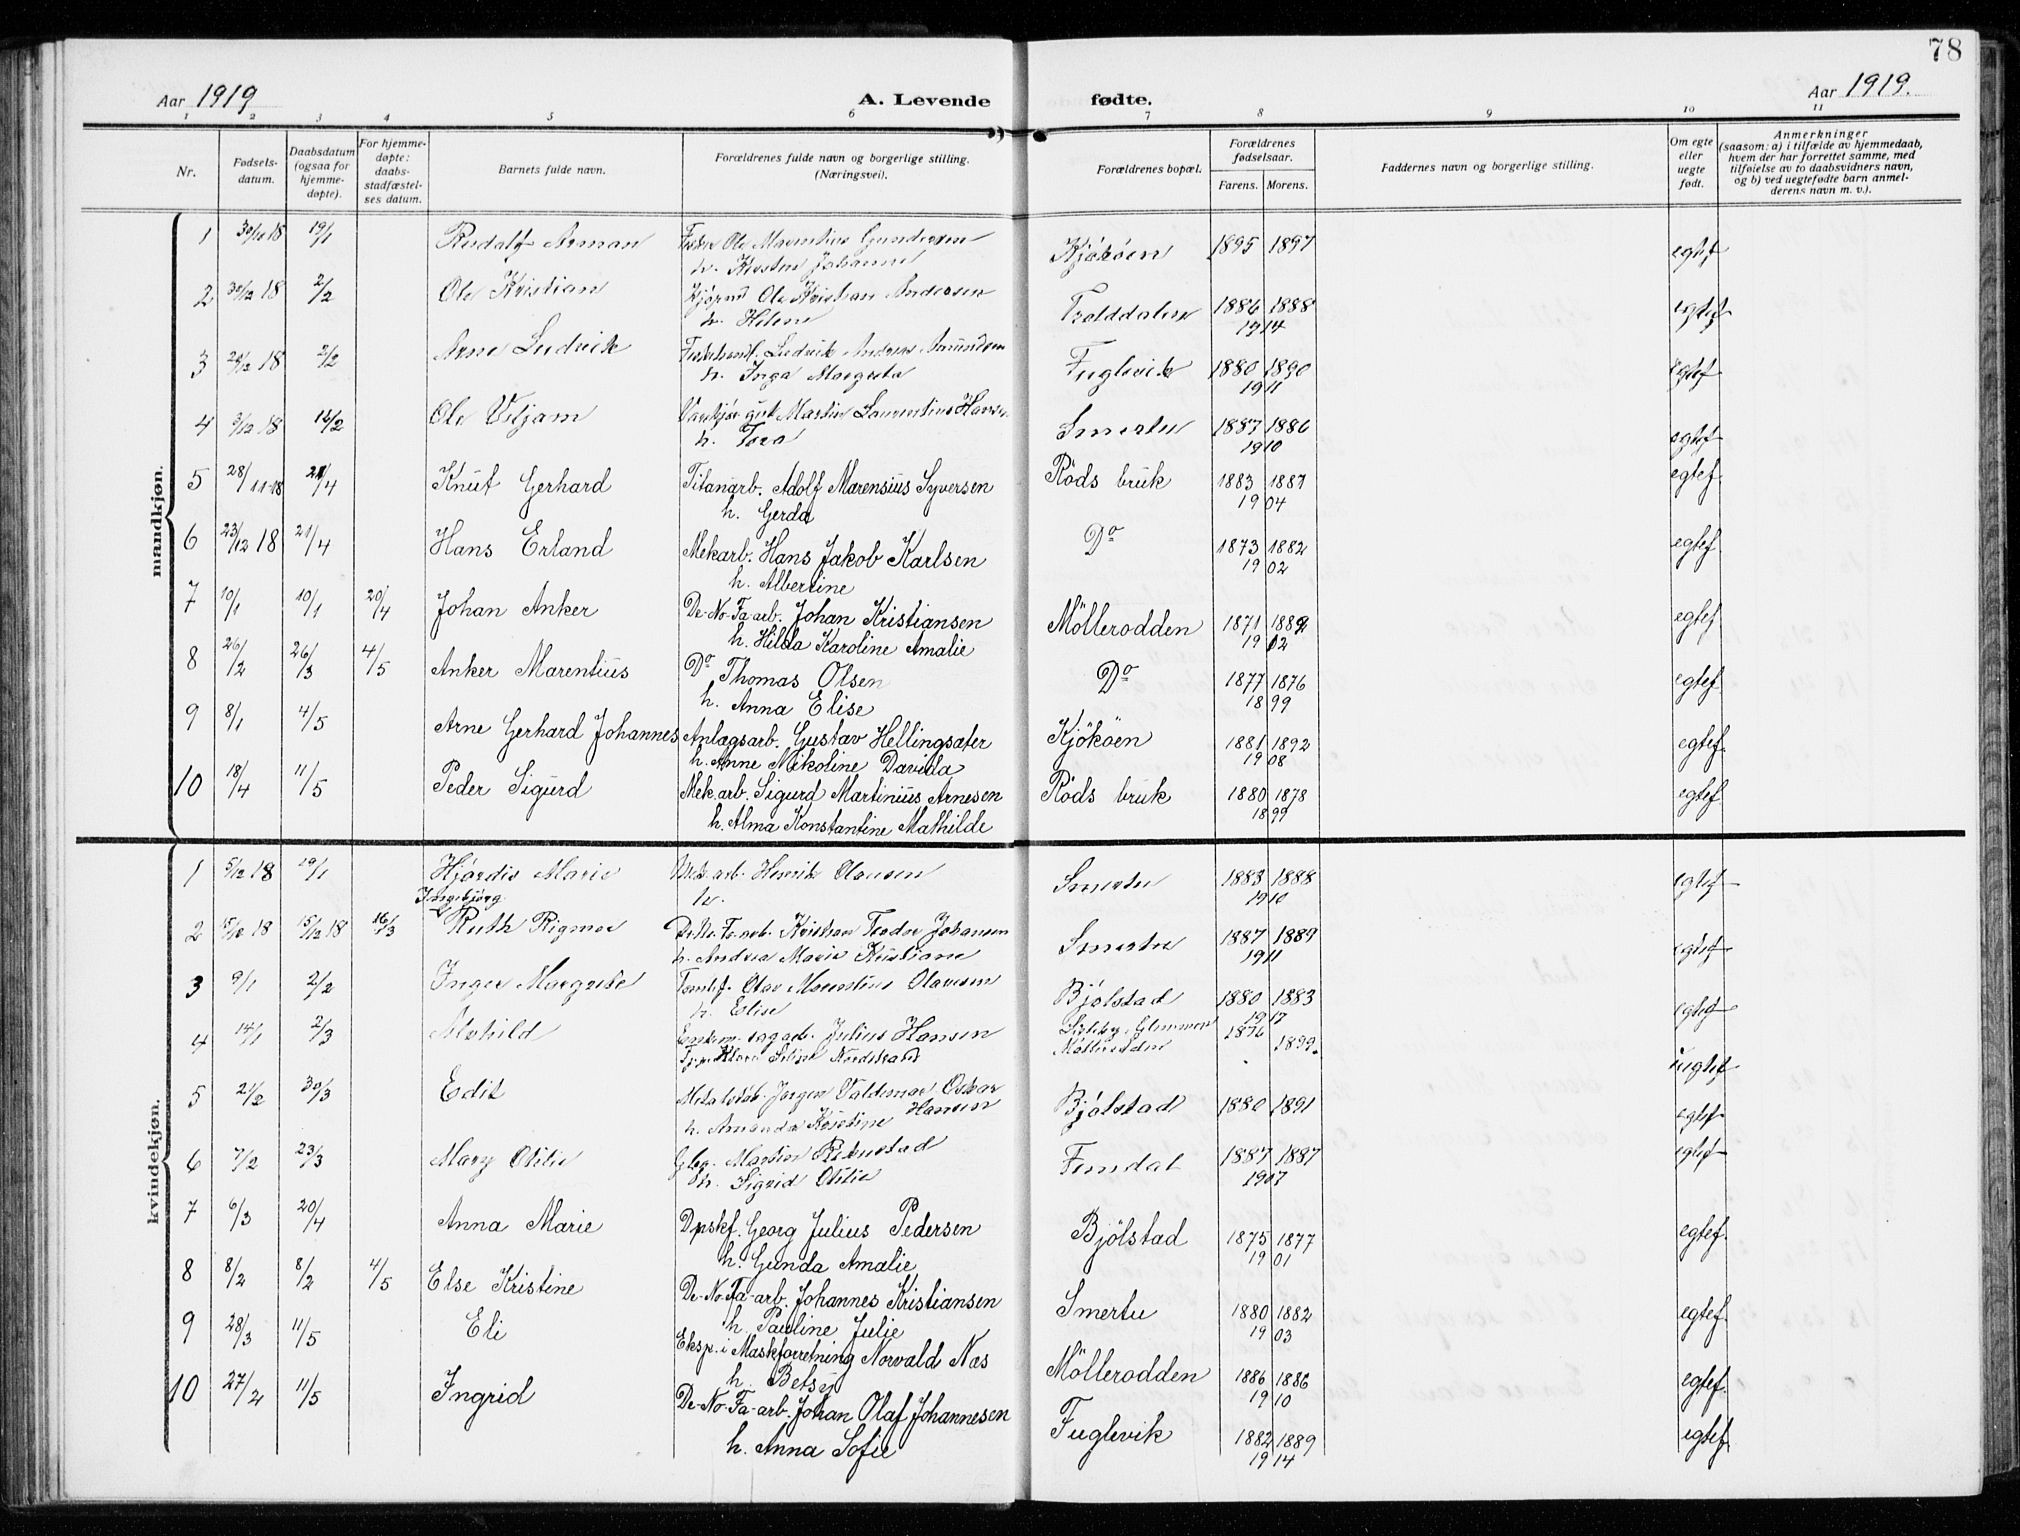 78
Aar 1919 A. Levende fødte. Aar 1919.
1 2 3 4 5 6 7 8 9 10 11
Nr. Fødsels-datum. Daabsdatum (ogsaa for hjemme-døpte). For hjemme-døpte: daabs-stadfæstel-ses datum. Barnets fulde navn. Forældrenes fulde navn og borgerlige stilling. (Næringsvei). Forældrenes bopæl. Forældrenes fødselsaar. Farens. Morens. Faddernes navn og borgerlige stilling. Om egte eller uegte født. Anmerkninger (saasom: a) i tilfælde av hjemmedaab, hvem der har forrettet samme, med tilføielse av to daabsvidners navn, og b) ved uegtefødte barn anmel-derens navn m. v.).
mandkjøn.
1 30/10 18 19/1 Rudolf Arman Fisker Ole Marentius Gundersen Kjököen 1895 1897 egtef
h. Kirsten Johanne
2 30/12 18 2/2 Ole Kristian Ole Kristian Andersen Trolddalen 1886 1888 egtef
h. Helene 1914
3 20/12 18 2/2 Arne Ludvik Fiskehandl. Ludvik Andreas Amundsen Fuglevik 1880 1890 egtef
h. Inga Margreta 1911
4 3/12 18 16/2 Ole Viljam Martin Laurentius Hansen Smertu 1887 1886 egtef
h. Tora 1910
5 28/11-18 21/4 Knut Gerhard Titanarb. Adolf Marensius Syversen Röds bruk 1883 1887 egtef
h. Gerda 1904
6 23/12 18 21/4 Hans Erland Mekarb. Hans Jakob Karlsen Do 1873 1882 egtef
h. Albertine 1902
7 10/1 10/1 20/4 Johan Anker De-No-Fa-arb. Johan Kristiansen Möllerodden 1871 1882 egtef
h. Hilda Karoline Amalie 1902
8 26/2 26/3 4/5 Anker Marentius Do Thomas Olsen Do 1877 1876 egtef
h. Anna Elise 1899
9 8/1 4/5 Arne Gerhard Johannes Anlægsarb. Gustav Hellingsæter Kjököen 1881 1892 egtef
h. Anne Nikoline Davida 1908
10 18/4 11/5 Peder Sigurd Mek.arb. Sigurd Martinius Arnesen Röds bruk 1880 1878 egtef
h. Alma Konstantine Mathilde 1899
kvindekjøn.
1 5/12 18 19/1 Hjørdis Marie Mek. arb. Henrik Olausen Smertu 1883 1888 egtef
Ingebjørg h. 1910
2 15/12 18 15/12 18 16/3 Ruth Rigmor De.No.Fa.arb. Kristian Teodor Johansen Smertu 1887 1889 egtef
h. Andrea Marie Kristiane 1911
3 9/1 2/2 Inger Margrete Tomtef. Olav Marentius Olavesen Bjølstad 1880 1883 egtef
h. Elise 1917
4 14/1 2/3 Alvhild Enkem. sagarb. Julius Hansen Glemmen 1876 uegtef
Klara Elise Nordstrand Møllerodden 1899.
5 21/2 30/3 Edit Jørgen Valdemar Oskar Hansen Bjølstad 1880 1891 egtef
h. Amanda Kristine
6 7/2 23/3 Mary Otilie Gbg. Martin Femdal 1887 1887 egtef
h. Sigrid Otilie 1907
7 6/3 20/4 Anna Marie Dpskf. Georg Julius Pedersen Bjölstad 1875 1877 egtef
h. Gunda Amalie 1901
8 8/2 8/2 4/5 Else Kristine De-No-Fa-arb. Johannes Kristiansen Smertu 1880 1882 egtef
h. Pauline Julie 1903
9 28/3 11/5 Eli Eksp. i Maskforretning Norvald Næs Möllerodden 1886 1886 egtef
h. Betsy 1910
10 27/2 11/5 Ingrid De-No-Fa-arb. Johan Olaf Johannesen Fuglevik 1882 1889 egtef
h. Anna Sofie 1914